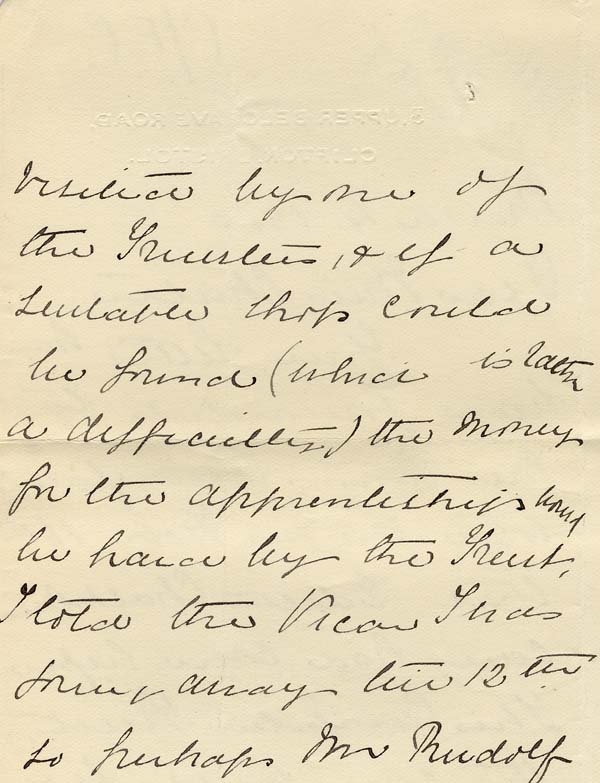 5, UPPER BELGRAVE ROAD,
CLIFTON, BRISTOL.
visited by one of
the Trustees, & if a
suitable shop could
be found (which is rather
a difficulty) the money
for the apprenticeship would
be paid by the Trust,
I told the Vicar I was
going away till 12th
so perhaps Mr Rudolf